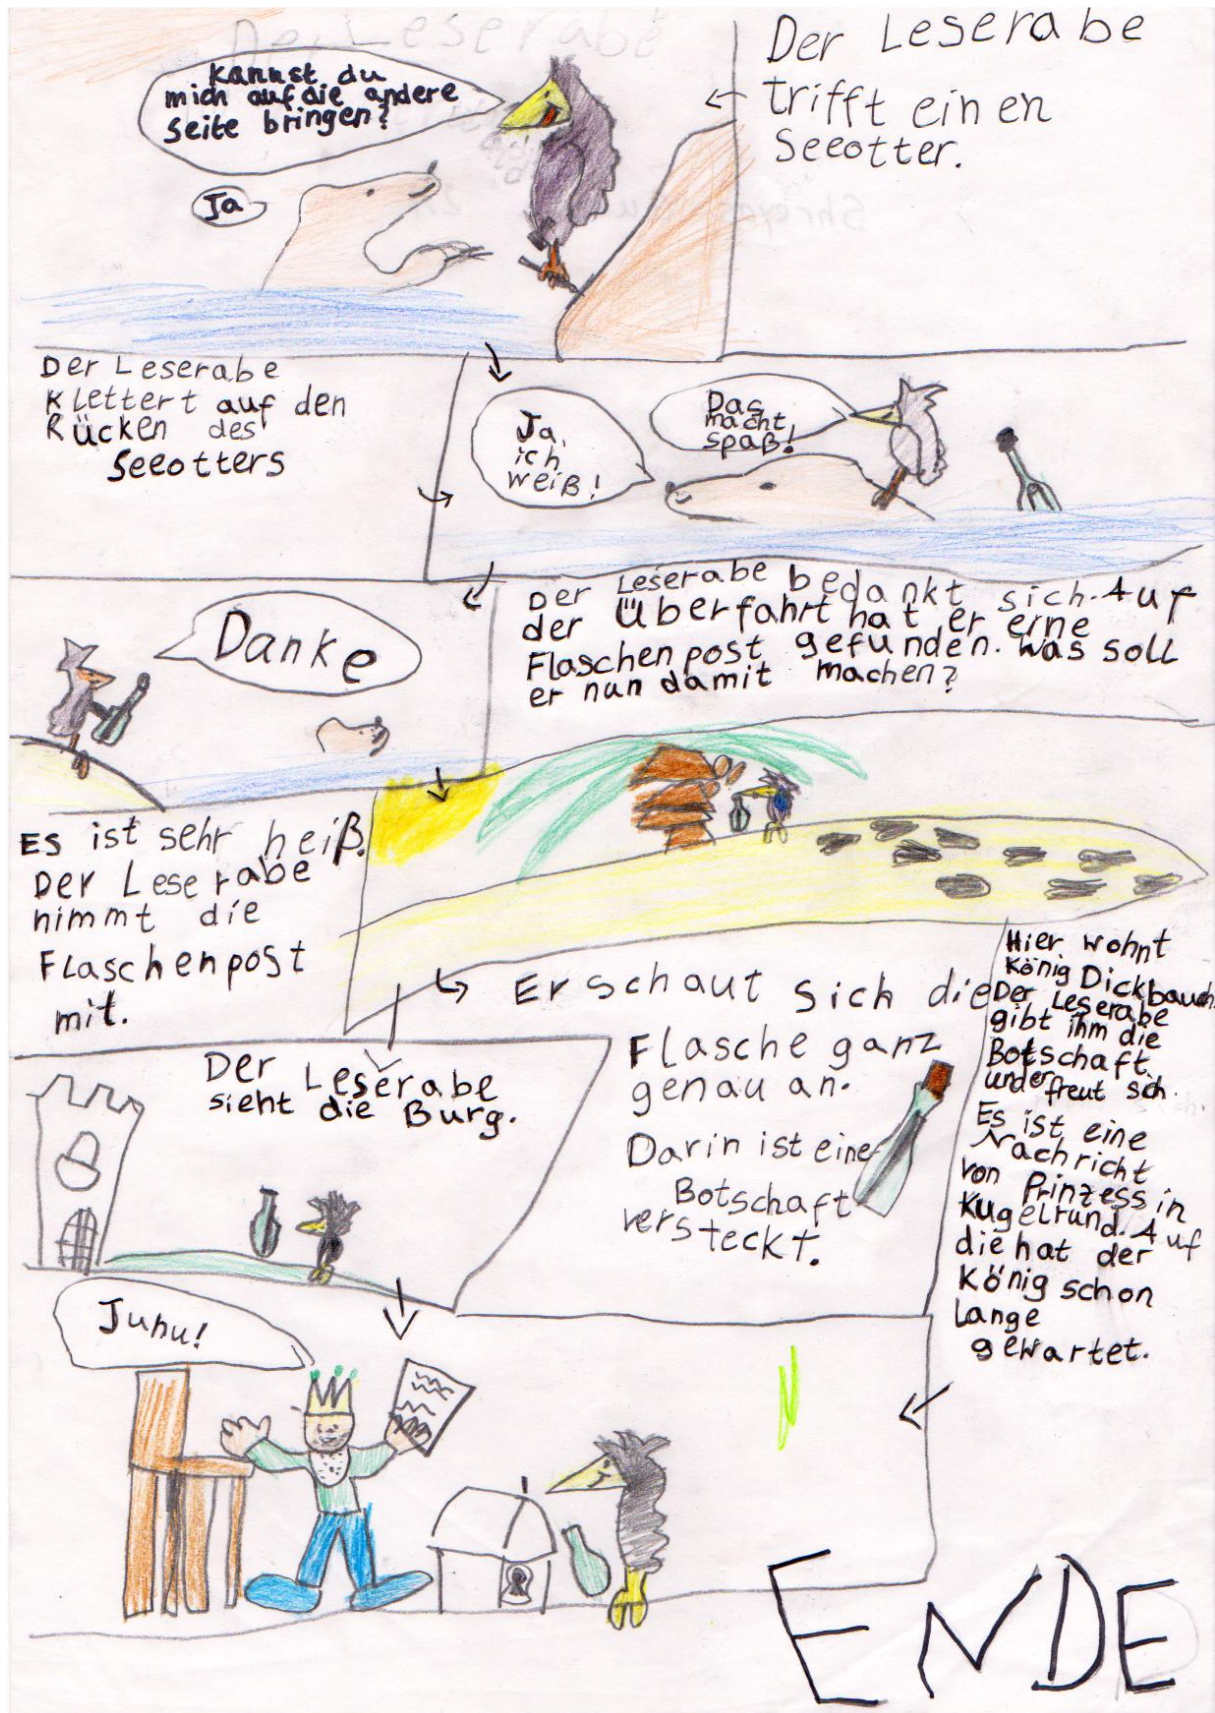 Der Leserabe
trifft einen
Seeotter.
Kannst du
mich auf die andere
Seite bringen?
Ja
Der Leserabe
klettert auf den
Rücken des
Seeotters
Das
macht
spaß!
Ja,
ich
weiß!
Danke
Der Leserabe bedankt sich. Auf
der Überfahrt hat er eine
Flaschenpost gefunden. Was soll
er nun damit machen?
Es ist sehr heiß.
Der Leserabe
nimmt die
Flaschenpost
mit.
Er schaut sich die
Flasche ganz
genau an.
Darin ist eine
Botschaft
versteckt.
Der Leserabe
sieht die Burg.
Hier wohnt
König Dickbauch.
Der Leserabe
gibt ihm die
Botschaft
under freut sich.
Es ist eine
Nachricht
von Prinzessin
Kugelrund. Auf
die hat der
König schon
lange
gewartet.
Juhu!
ENDE